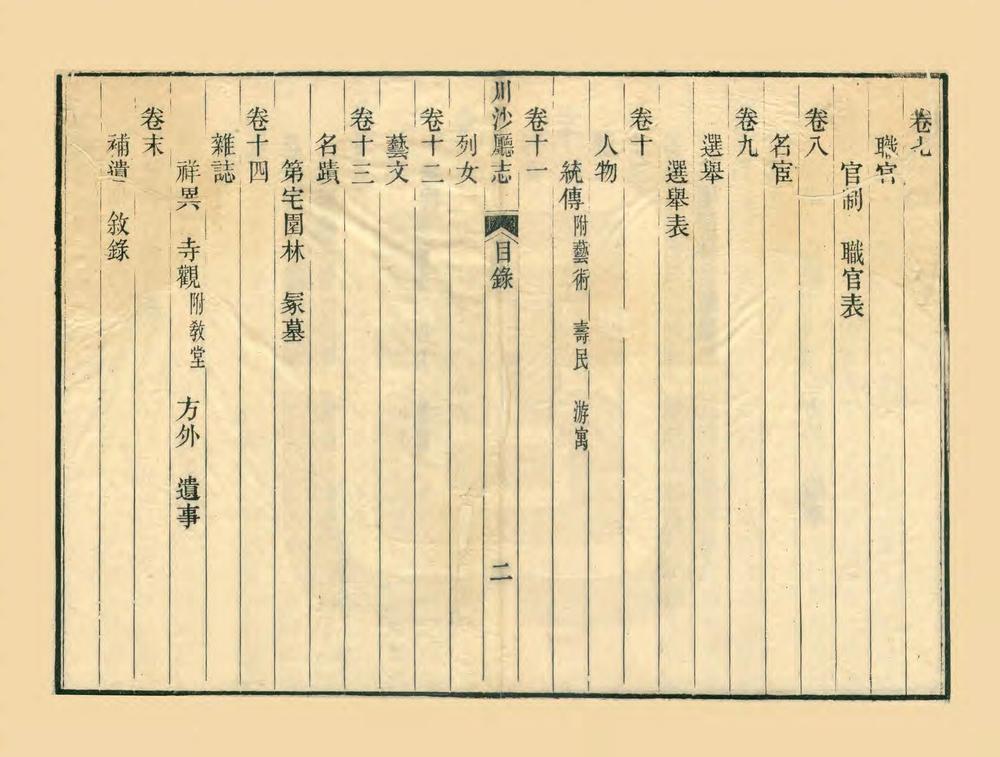 卷七
職官
官制　職官表
卷八
名宦
卷九
選舉
選舉表
卷十
人物
統傳附藝術　壽民　游寓
卷十一
川沙廳志　目錄　二
列女
卷十二
藝文
卷十三
名蹟
第宅園林　冢墓
卷十四
雜誌
祥異　寺觀附敎堂　方外　遺事
卷末
補遺　敘錄